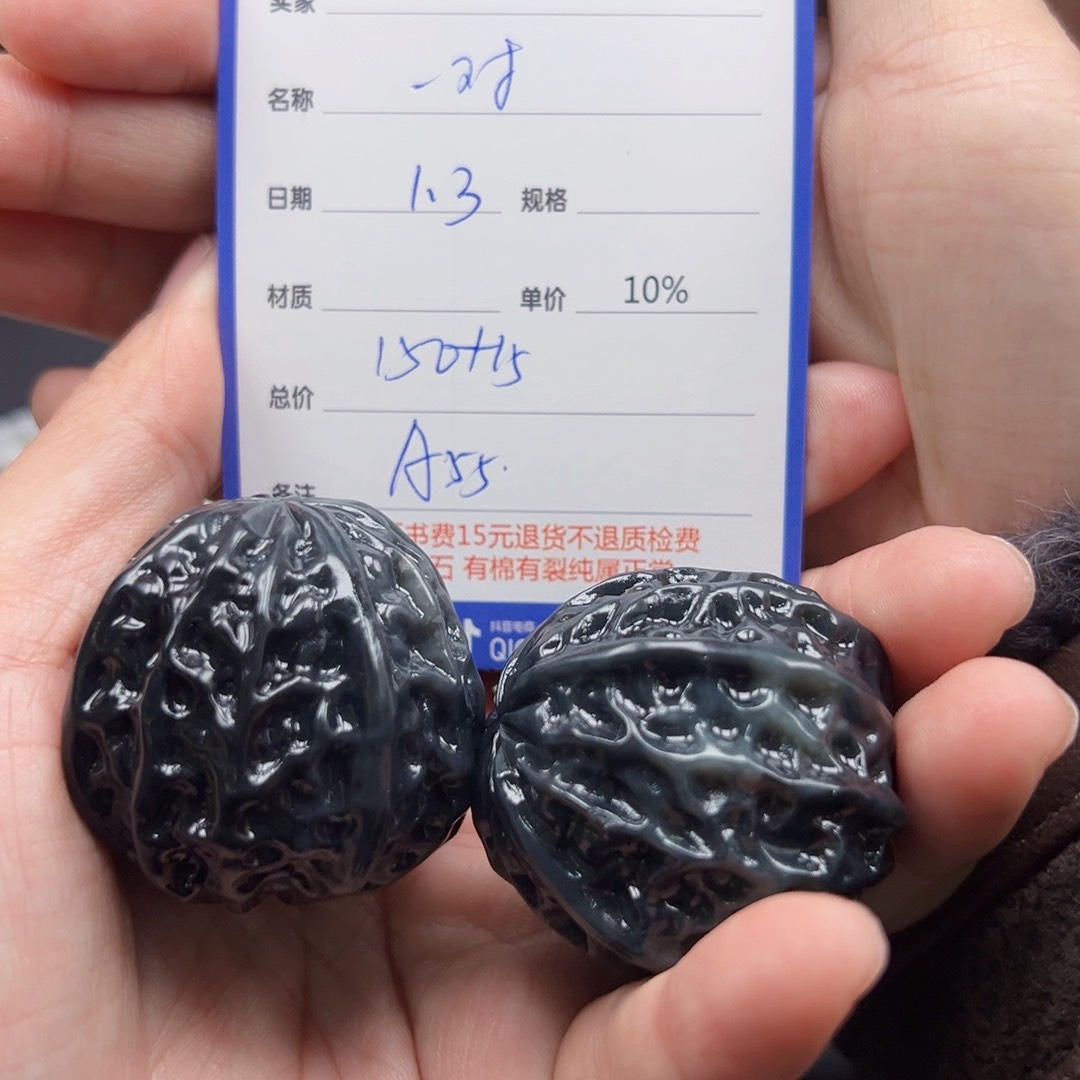 卖家
名称 一对
日期 1.3 规格
材质 单价 10%
总价 150+15
备注 A55.
书费15元退货不退质检费
石 有棉有裂纯属正常
抖音电商
QIC